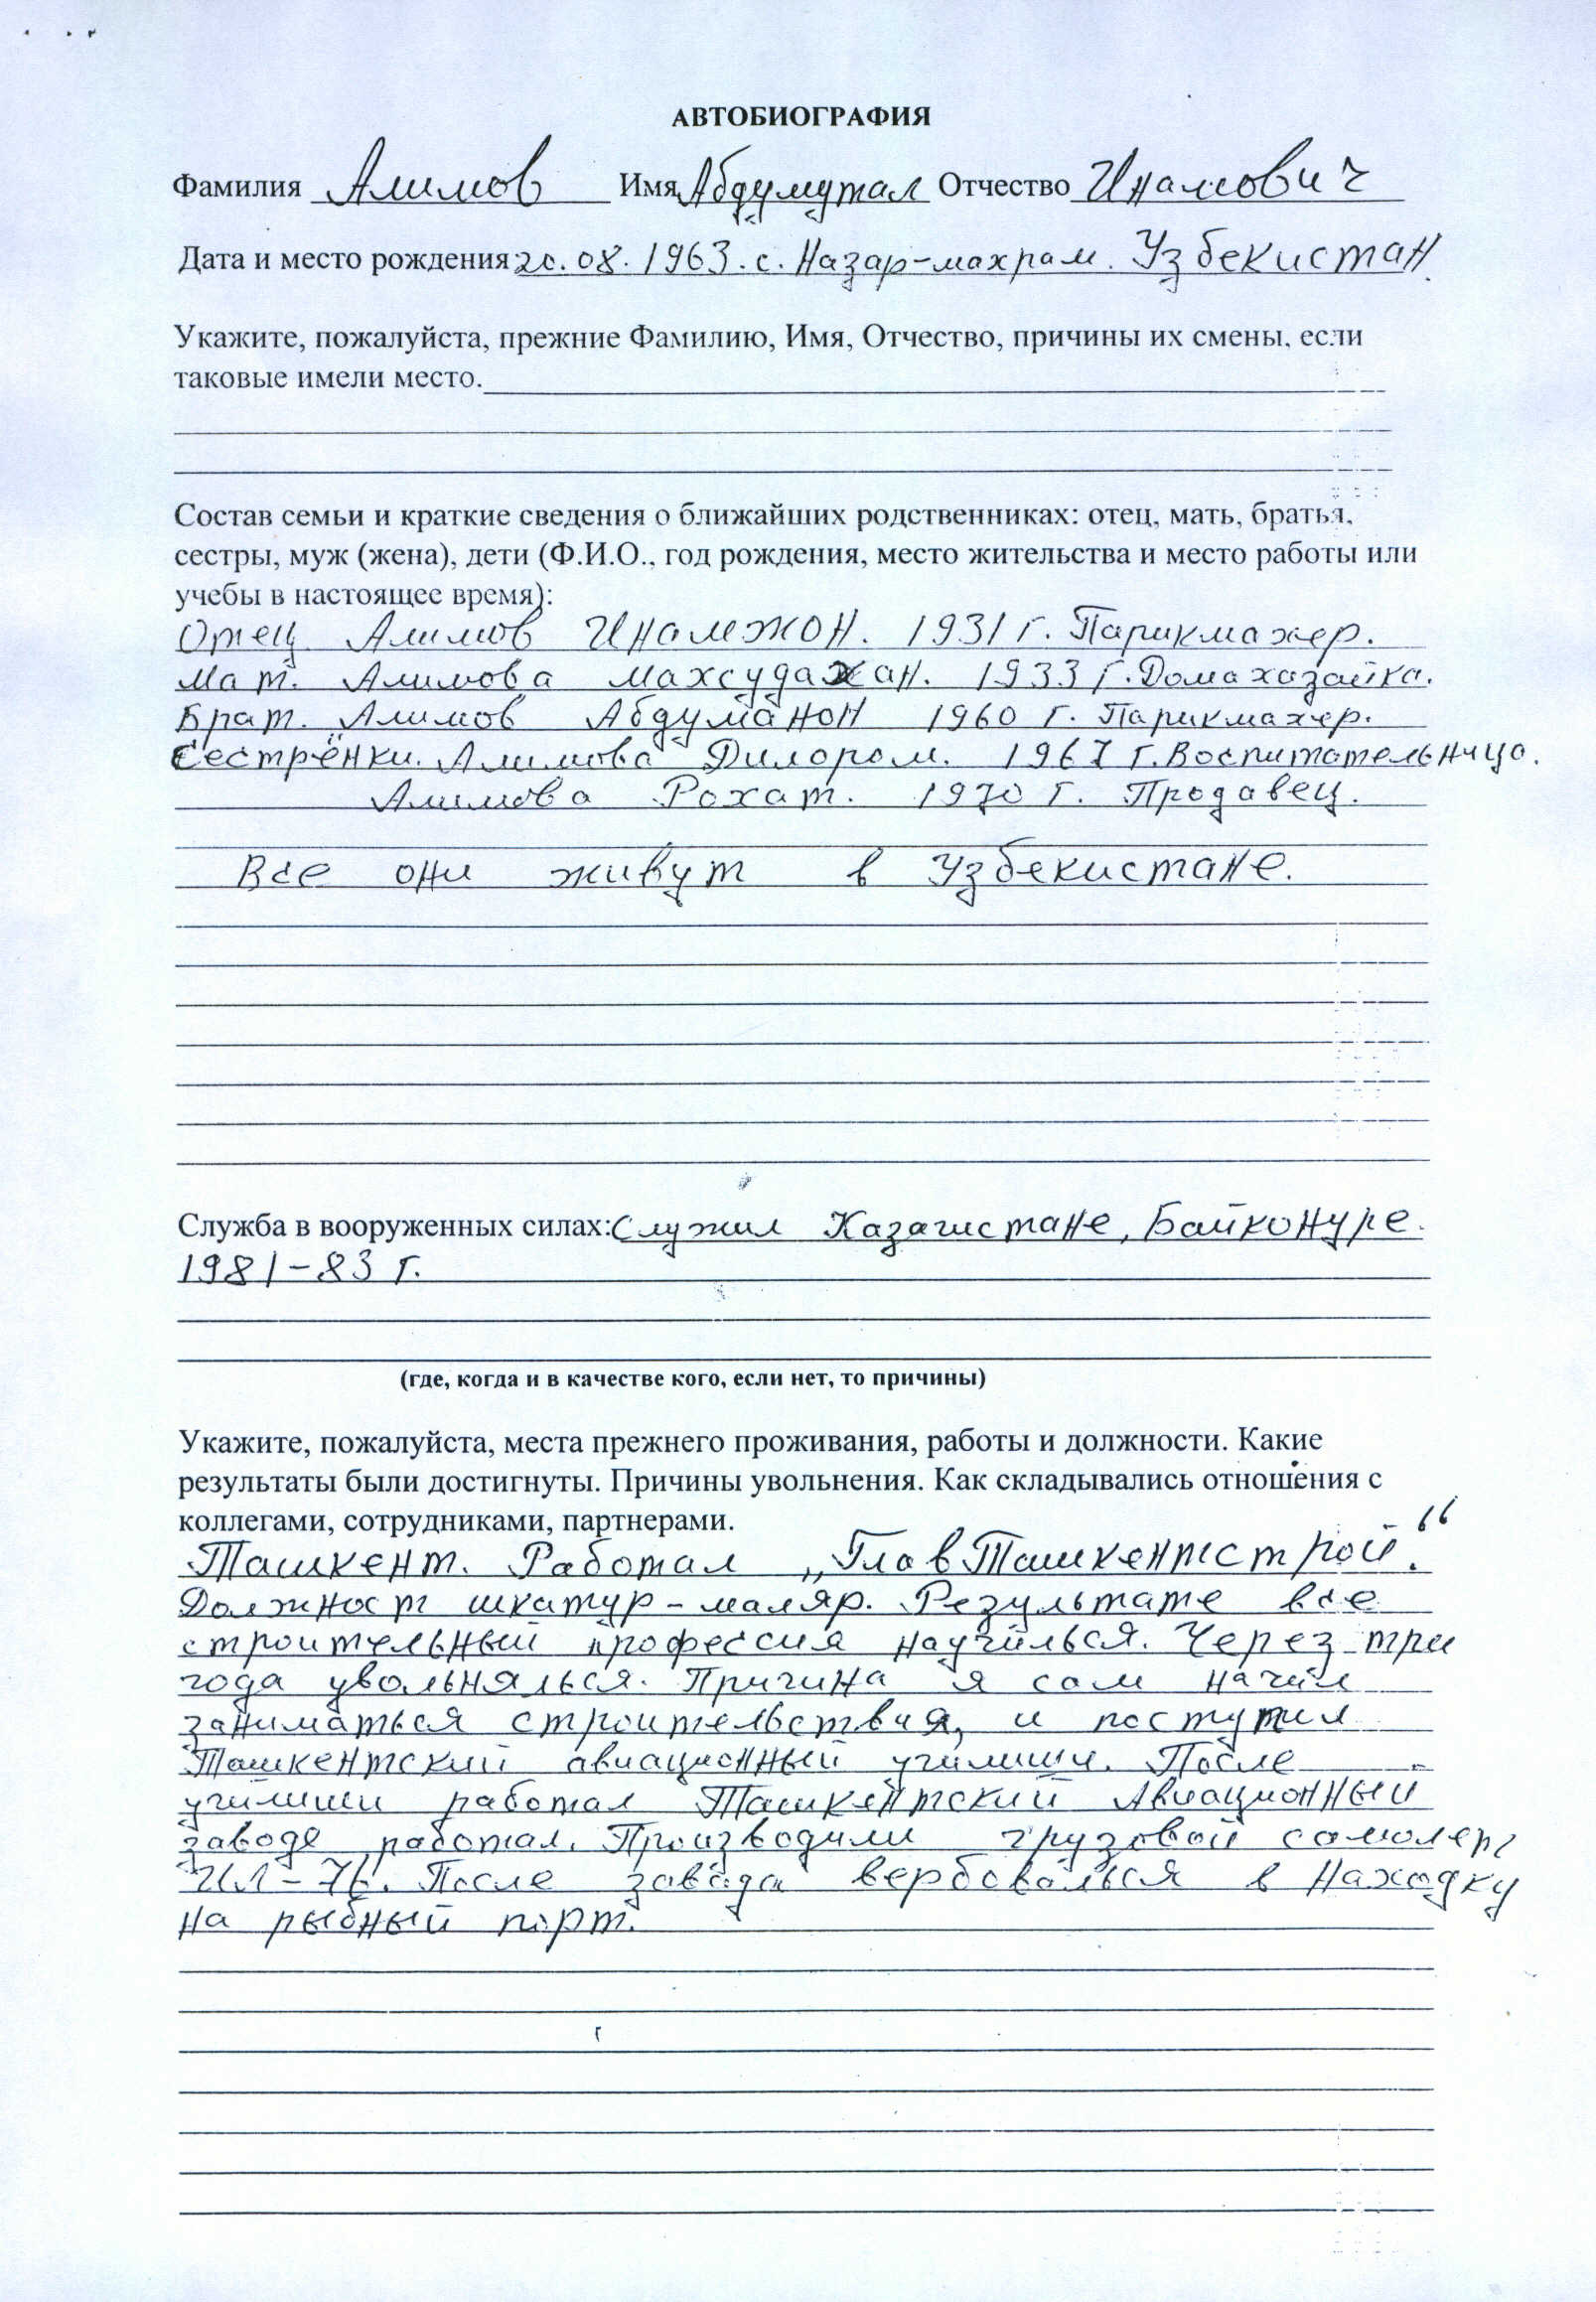 АВТОБИОГРАФИЯ
Фамилия Алимов Имя Абдумутал Отчество Инамович
Дата и место рождения 20.08.1963.с.Назар-махрам. Узбекистан.
Укажите, пожалуйста, прежние Фамилию, Имя, Отчество, причины их смены, если
таковые имели место.
Состав семьи и краткие сведения о ближайших родственниках: отец, мать, братья,
сестры, муж (жена), дети (Ф.И.О., год рождения, место жительства и место работы или
учебы в настоящее время):
Отец Алимов Инамжон. 1931 г. Парикмахер.
Мат. Алимова Махсудахан. 1933 г. Дома хазайка.
Брат. Алимов Абдуманон 1960 г. Парикмахер.
Сестрёнки. Алимова Дилором. 1967 г. Воспитательница.
Алимова Рохат. 1970 г. Продавец.
Все они живут в Узбекистане.
Служба в вооруженных силах: Служил Казагистане, Байконуре.
1981-83 г.
(где, когда и в качестве кого, если нет, то причины)
Укажите, пожалуйста, места прежнего проживания, работы и должности. Какие
результаты были достигнуты. Причины увольнения. Как складывались отношения с
коллегами, сотрудниками, партнерами.
Ташкент. Работал „ГлавТашкентстрой".
Должност шкатур-маляр. Результате все
строительный профессия научилься. Через три
года увольнялься. Причина я сам начил
заниматься строительствия, и поступил
Ташкентский авиационный училищи. После
училищи работал Ташкентский Авиационный
заводе работал. Производили грузовой самолерт
ИЛ-76. После завада вербовалься в Находку
на рыбный порт.